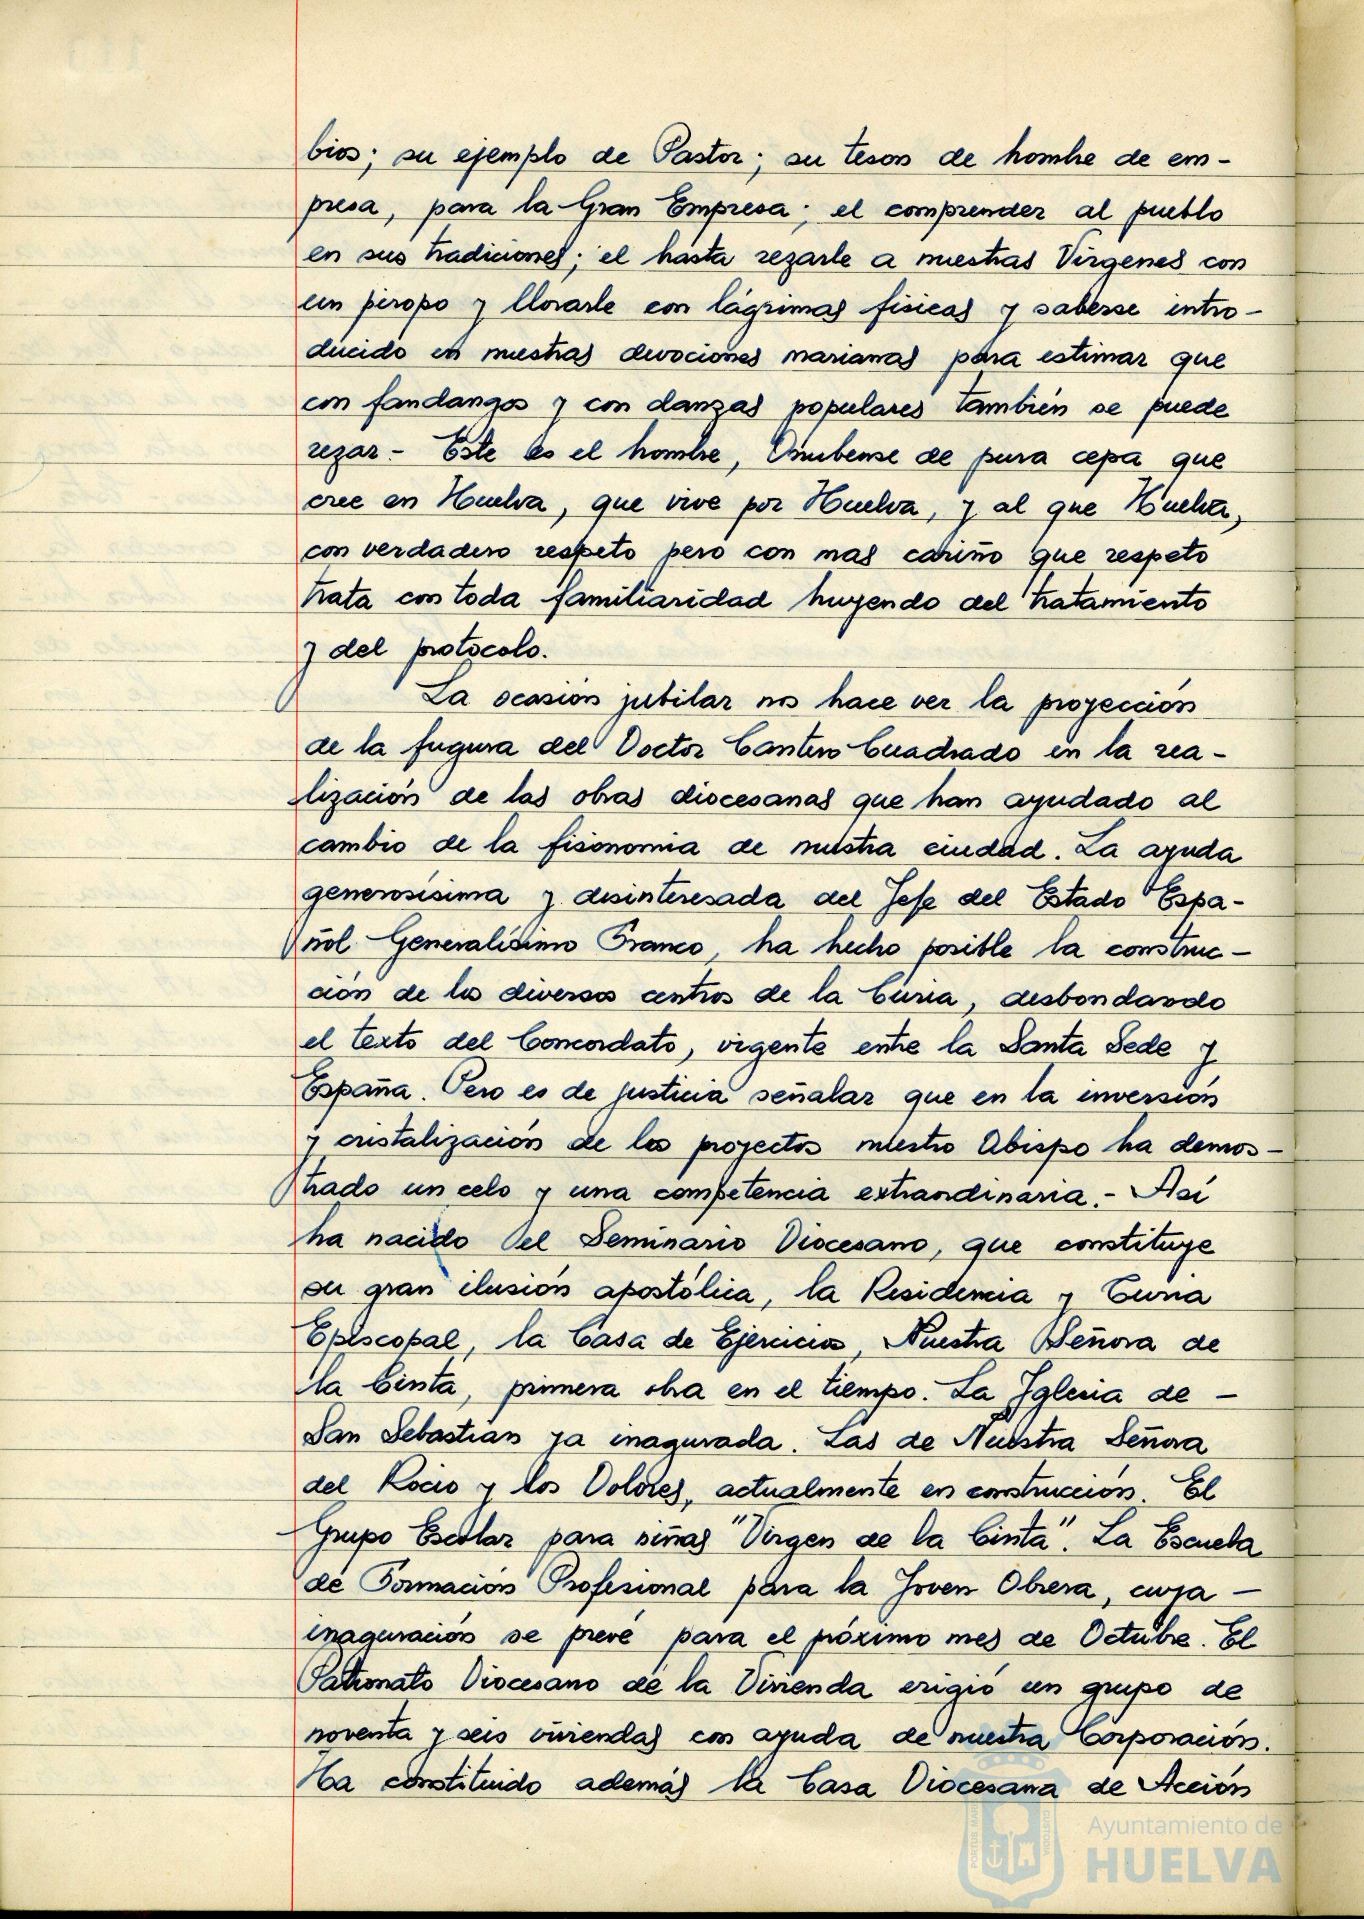 bios; su ejemplo de Pastor; su teson de hombre de em-
presa, para la Gran Empresa; el comprender al pueblo
en sus tradiciones; el hasta rezarle a nuestras Vírgenes con
un piropo y llorarle con lágrimas fisicas y saberse intro-
ducido en nuestras devociones marianas para estimar que
con fandangos y con danzas populares también se puede
rezar.- Este es el hombre, Onubense de pura cepa que
cree en Huelva, que vive por Huelva, y al que Huelva,
con verdadero respeto pero con mas cariño que respeto
trata con toda familiaridad huyendo del tratamiento
y del protocolo.
La ocasión jubilar nos hace ver la proyección
de la fugura del Doctor Cantero Cuadrado en la rea-
lización de las obras diocesanas que han ayudado al
cambio de la fisonomia de nuestra ciudad. La ayuda
generosísima y desinteresada del Jefe del Estado Espa-
ñol Generalísimo Franco, ha hecho posible la construc-
ción de los diversos centros de la Curia, desbondando
el texto del Concordato, vigente entre la Santa Sede y
España. Pero es de justicia señalar que en la inversión
y cristalización de los proyectos nuestro Obispo ha demos-
trado un celo y una competencia extraordinaria.- Así
ha nacido el Seminario Diocesano, que constituye
su gran ilusión apostólica, la Residencia y Curia
Episcopal, la Casa de Ejercicios, Nuestra Señora de
la Cinta, primera obra en el tiempo. La Iglesia de -
San Sebastián ya inagurada. Las de Nuestra Señora
del Rocio y los Dolores, actualmente en construcción. El
Grupo Escolar para niñas "Virgen de la Cinta". La Escuela
de Formación Profesional para la Joven Obrera, cuya -
inaguración se prevé para el próximo mes de Octubre. El
Patronato Diocesano de la Vivienda erigió un grupo de
noventa y seis viviendas con ayuda de nuestra Corporación.
Ha constituido además la Casa Diocesana de Acción
Ayuntamiento de
HUELVA